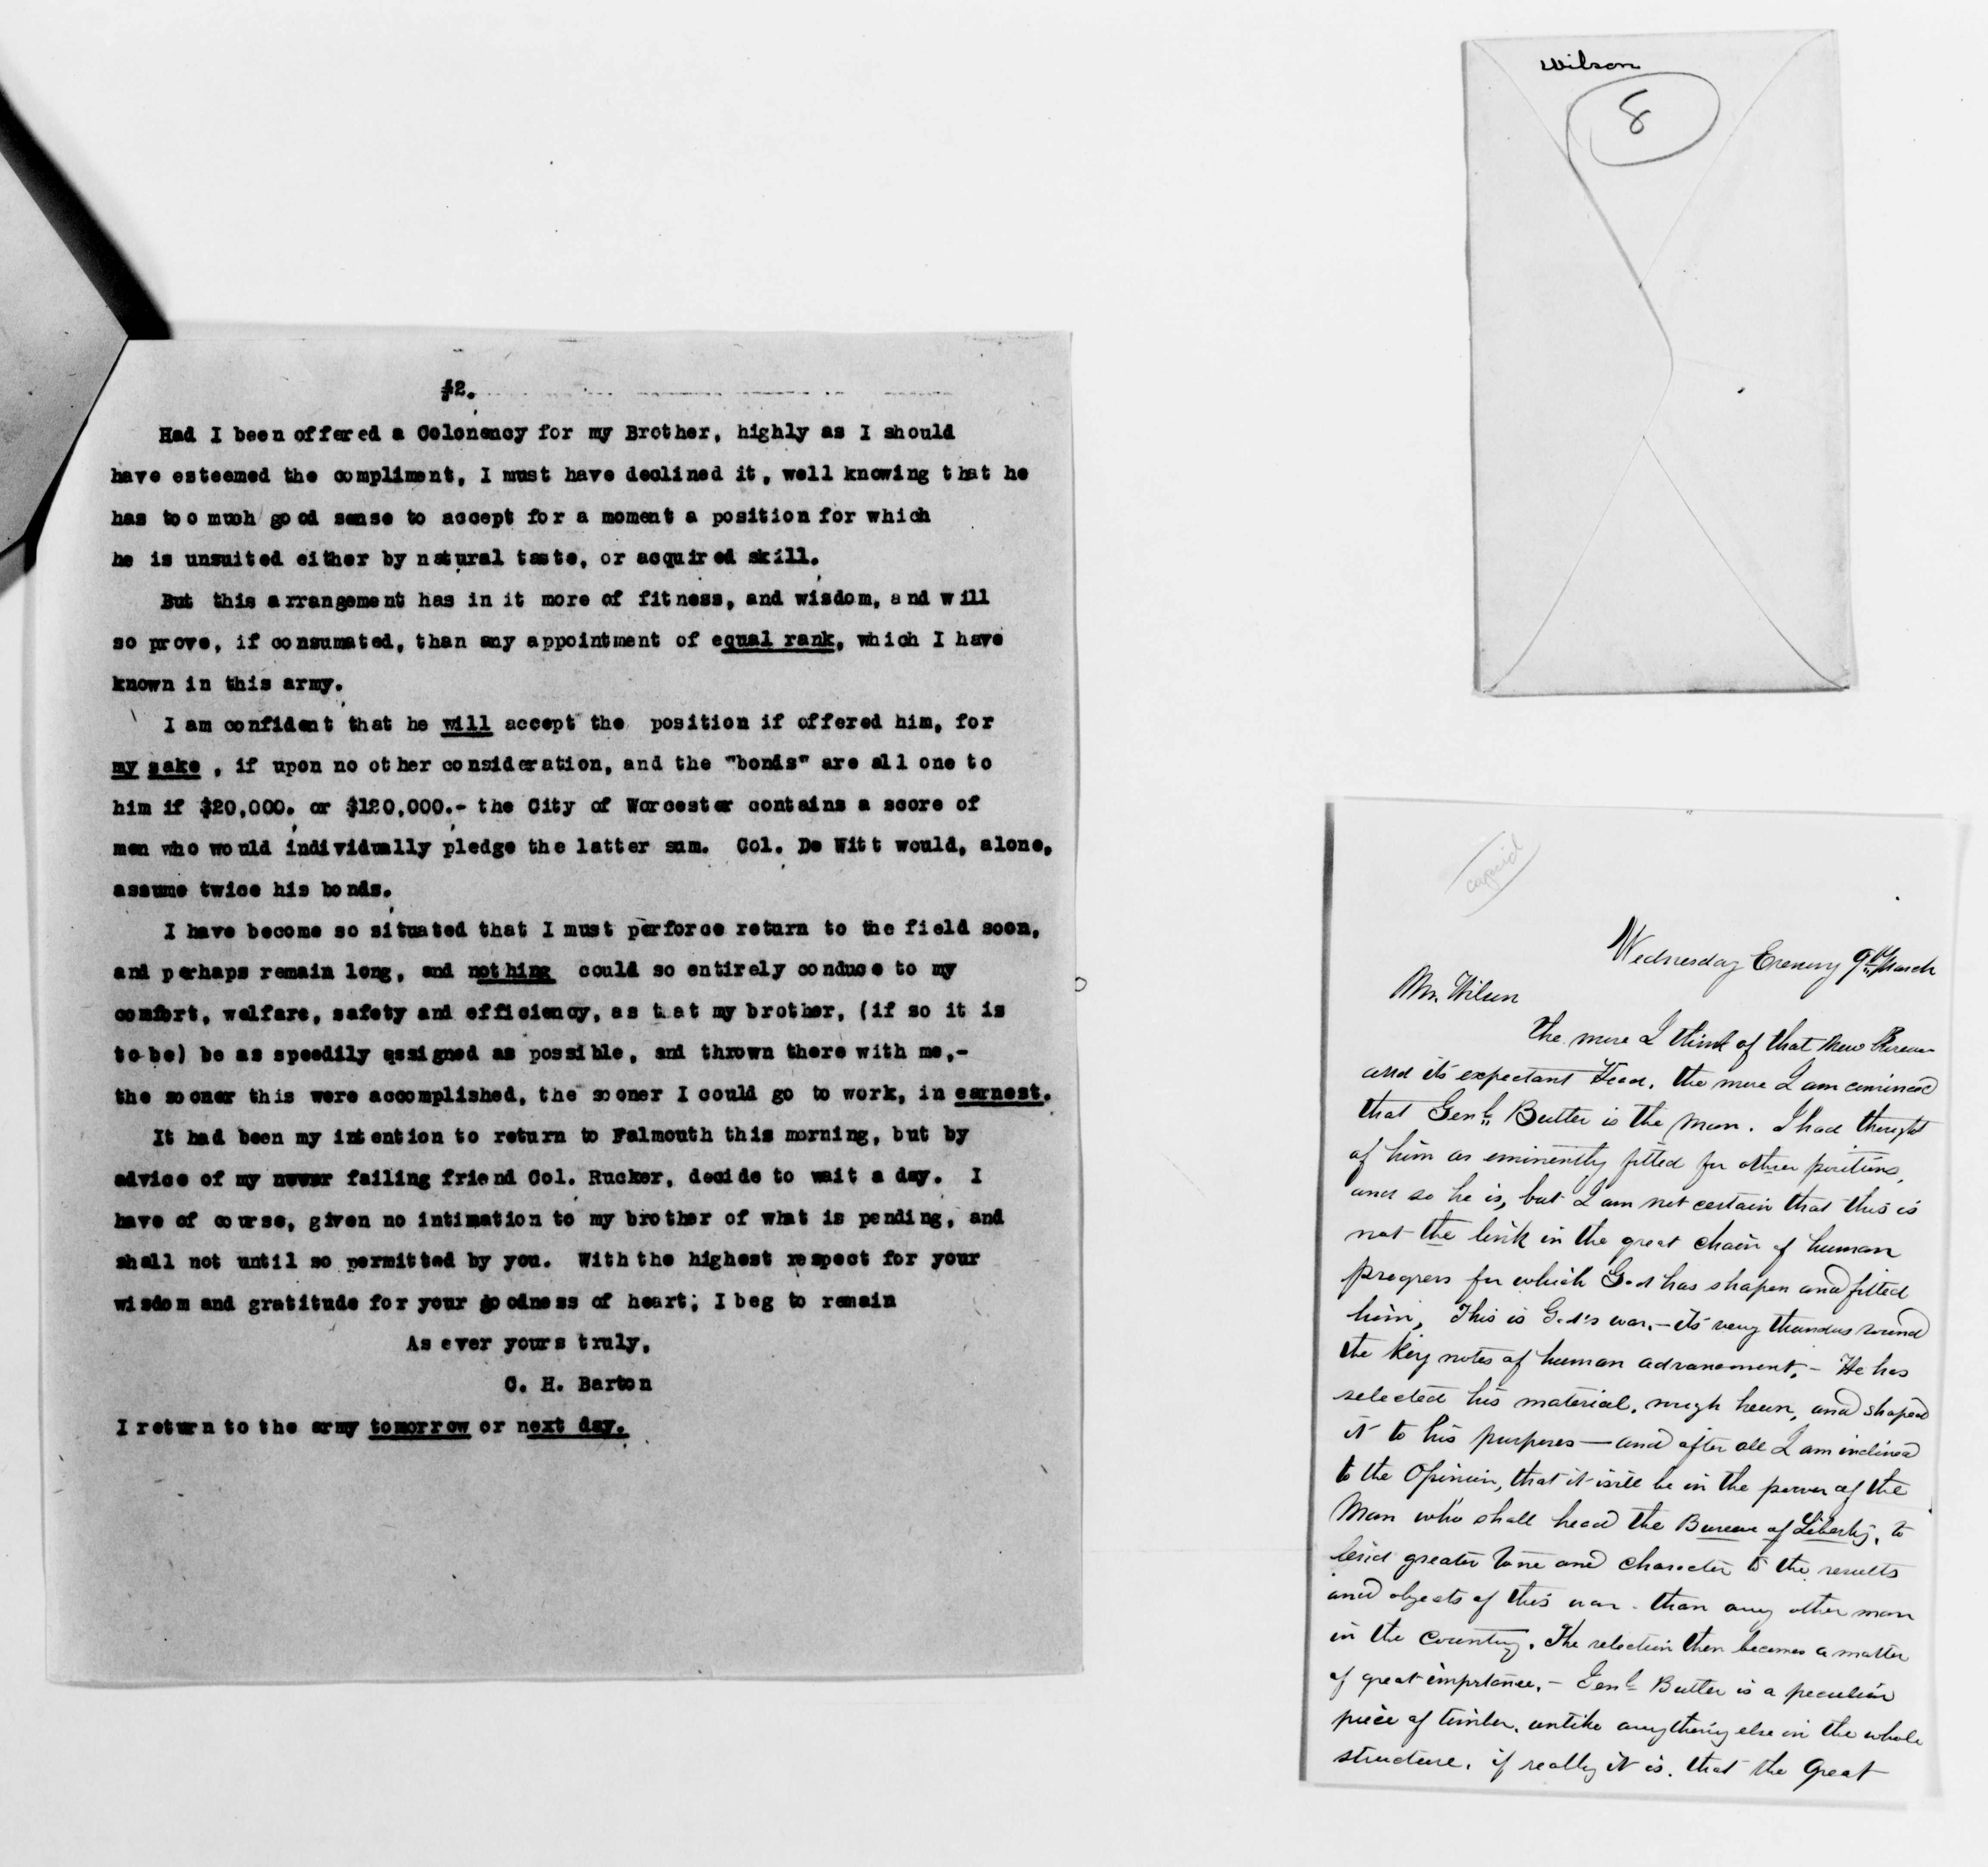 #2.
Had I been offered a Colonency for my Brother, highly as I should
have esteemed the compliment, I must have declined it, well knowing that he
has too much good sense to accept for a moment a position for which
he is unsuited either by natural taste, or acquired skill.
But this arrangement has in it more of fitness, and wisdom, and will
so prove, if consumated, than any appointment of equal rank, which I have
known in this army.
I am confident that he will accept the position if offered him, for
my sake , if upon no other consideration, and the "bonds" are all one to
him if $20,000. or $120,000.- the City of Worcester contains a score of
men who would individually pledge the latter sum. Col. De Witt would, alone,
assume twice his bonds.
I have become so situated that I must perforce return to the field soon,
and perhaps remain long, and nothing could so entirely conduce to my
comfort, welfare, safety and efficiency, as that my brother, (if so it is
to be) be as speedily assigned as possible, and thrown there with me,-
the sooner this were accomplished, the sooner I could go to work, in earnest.
It had been my intention to return to Falmouth this morning, but by
advice of my never failing friend Col. Rucker, decide to wait a day. I
have of course, given no intimation to my brother of what is pending, and
shall not until so permitted by you. With the highest respect for your
wisdom and gratitude for your goodness of heart; I beg to remain
As ever yours truly,
C. H. Barton
I return to the army tomorrow or next day.
Wilson
8
copied
Wednesday Evening 9th March
Mr. Wilson
The more I think of that New Bureau
and its expectant Head, the more I am convinced
that Genl. Butler is the man. I had thought
of him as eminently fitted for other positions,
and so he is, but I am not certain that this is
not the link in the great chain of human
progress for which God has shapen and fitted
him, This is God's war, — its very thunders sound
the key notes of human advancement, — He has
selected his material, rough hewn, and shaped
it to his purposes — and after all I am inclined
to the Opinion, that it will be in the power of the
Man who shall head the Bureau of Liberty, to
lend greater tone and character to the results
and objects of this war than any other man
in the country. The selection then becomes a matter
of great importance, — Genl Butler is a peculiar
piece of timber, unlike anything else in the whole
structure, if really it is, that the Great